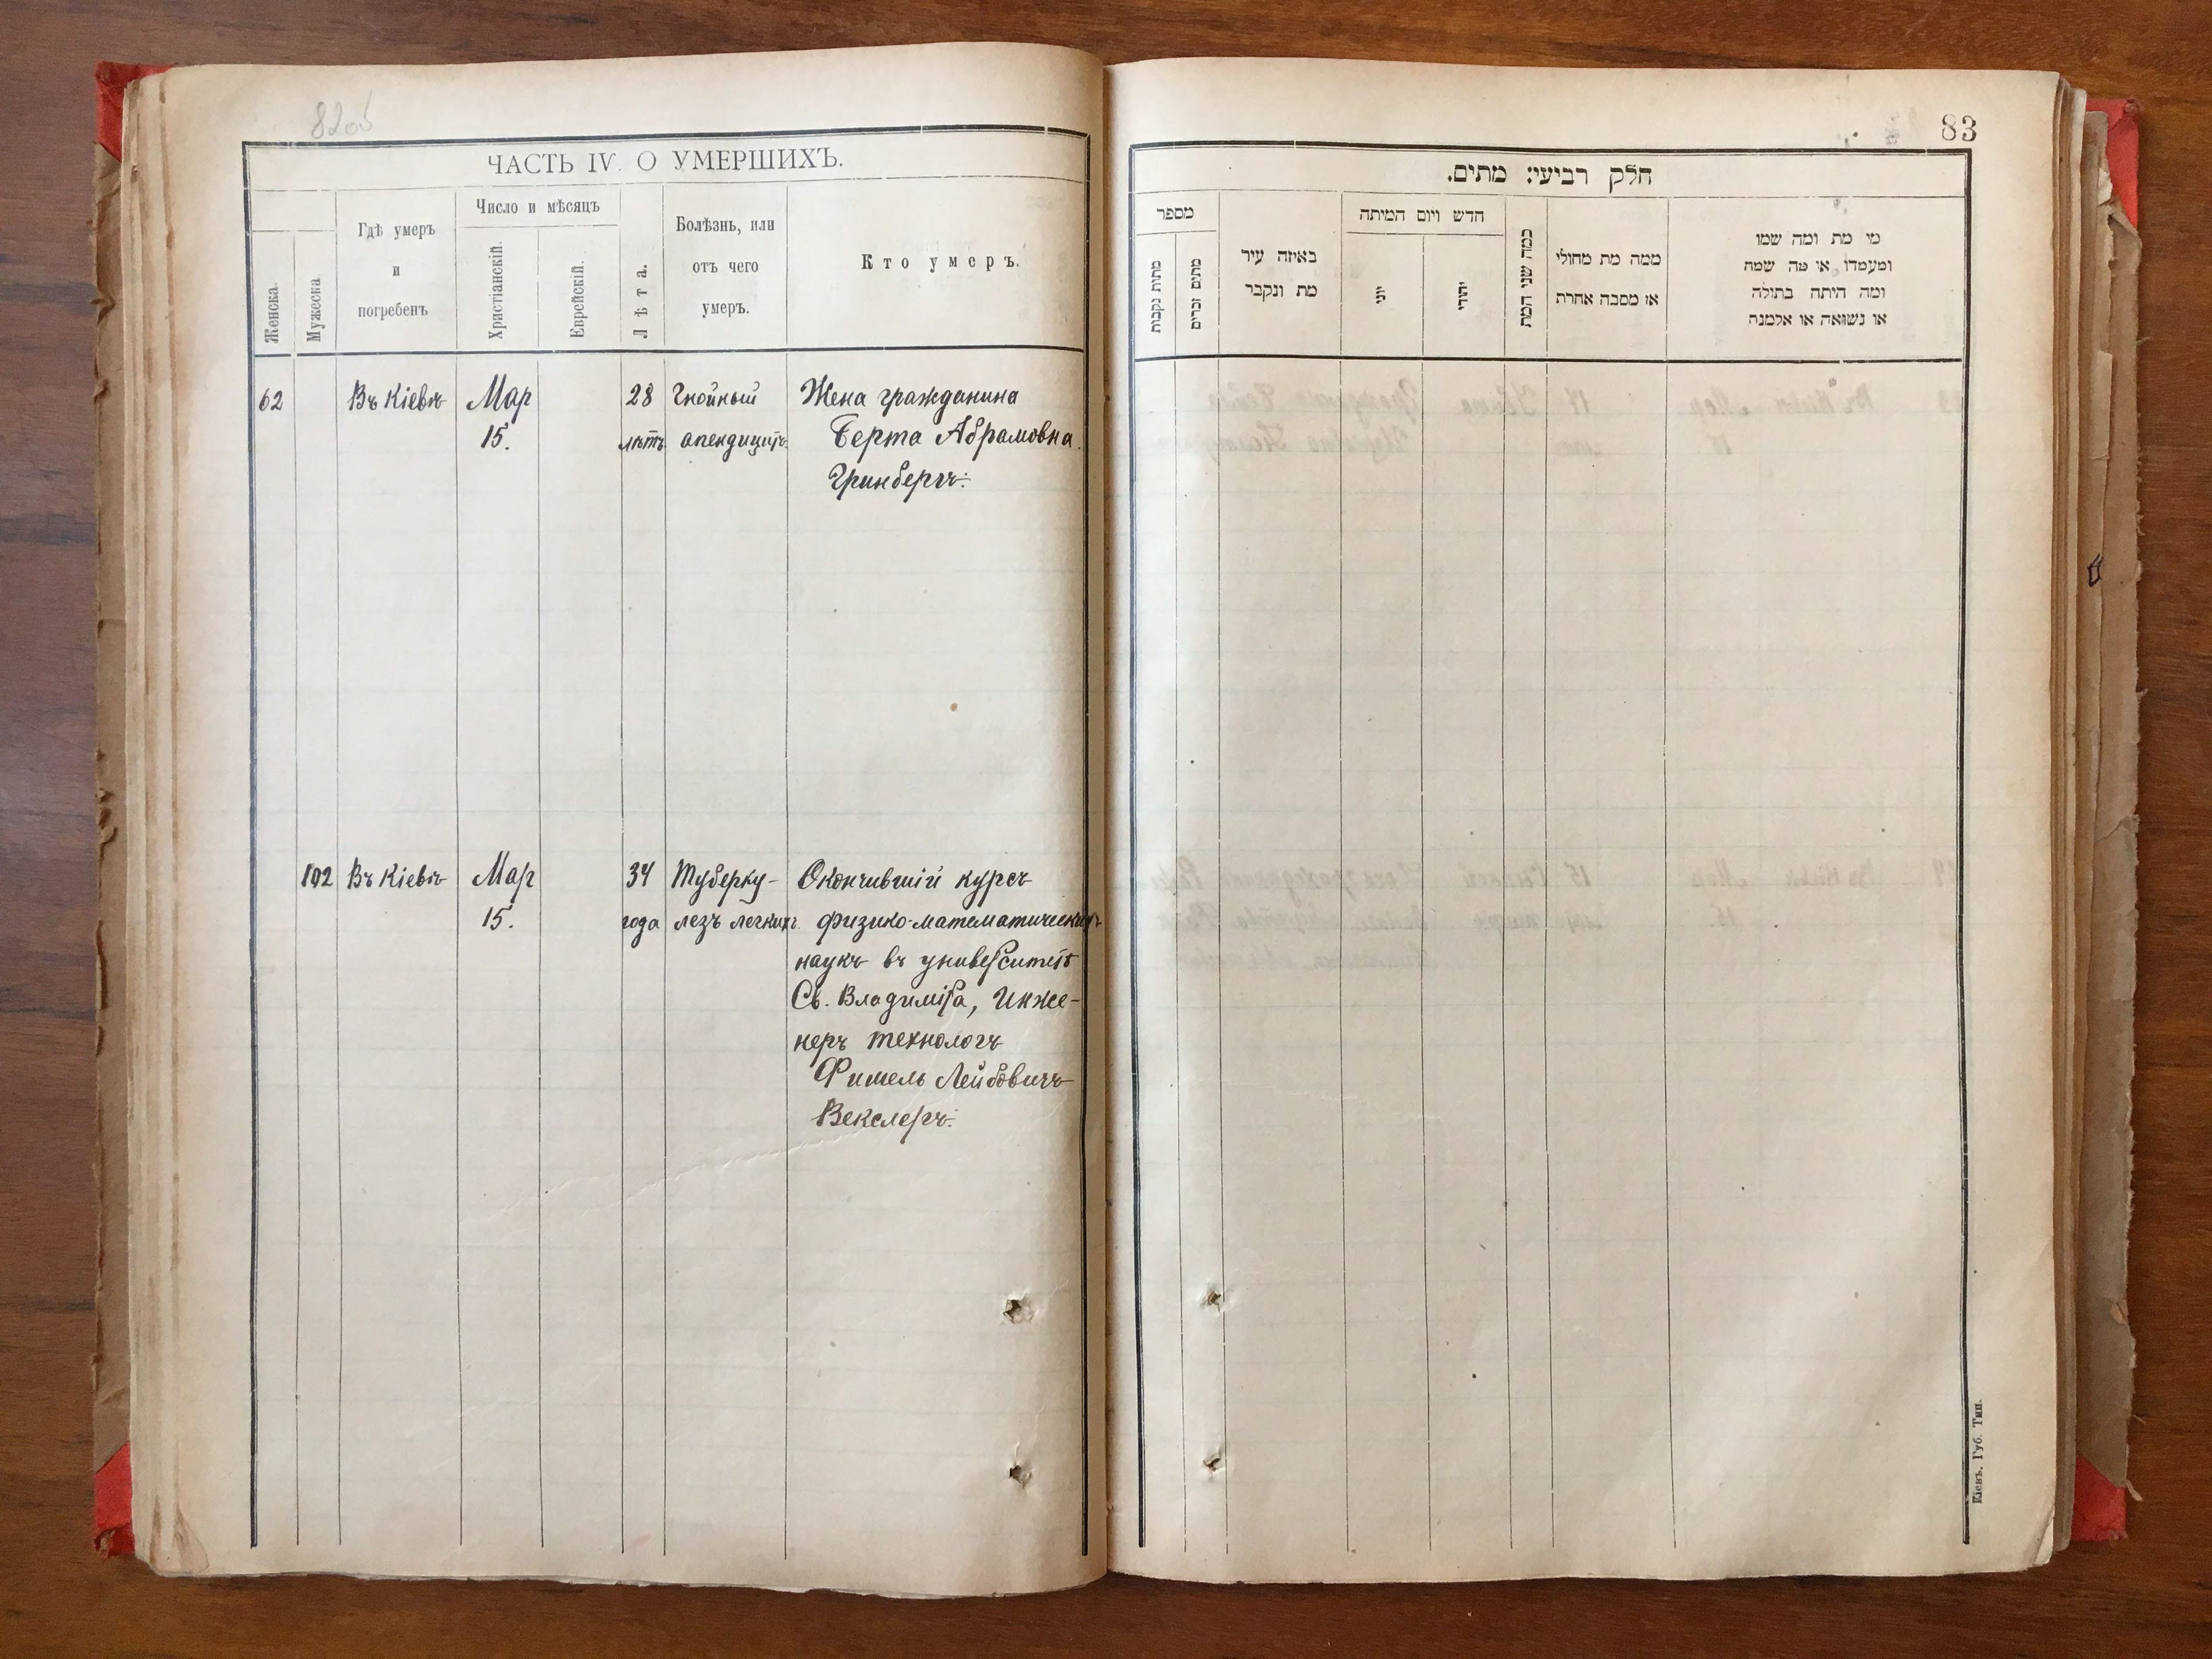 82об
ЧАСТЬ IV. О УМЕРШИХЪ.
Женска.
Мужеска
Гдѣ умеръ
и
погребенъ
Число и мѣсяцъ
Христіанскій.
Еврейскій.
Лѣта.
Болѣзнь, или
отъ чего
умеръ.
Кто умеръ.
62 Въ Кіевѣ Мар 28 Гнойный Жена гражданина
15. лѣтъ апендицитъ Берта Абрамовна
Гринбергъ.
102 Въ Кіевѣ Мар 34 Туберку- Окончившій курсъ
15. года лезъ легкихъ. физико-математическихъ
наукъ въ университетѣ
Св. Владиміра, Инже-
неръ технологъ
Фишель Лейбовичъ
Векслеръ.
83
חלק רביעי: מתים.
מספר
מתות נקבות
מתים זכרים
באיזה עיר
מת ונקבר
חדש ויום המיתה
יוני
יהודי
כמה שני המת
ממה מת מחולי
או מסבה אחרת
מי מת ומה שמו
ומעמדו או מה שמה
ומה היתה בתולה
או נשואה או אלמנה
Кіевъ. Губ. Тип.